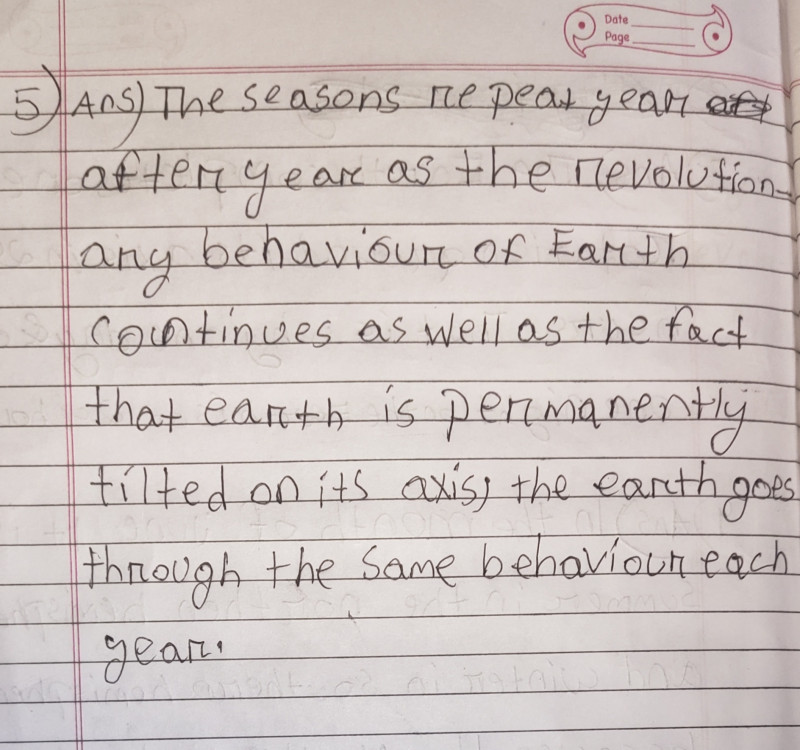 Date
Page
5) Ans) The seasons repeat year
after year as the revolution-
ary behaviour of Earth
continues as well as the fact
that earth is permanently
tilted on its axis, the earth goes
through the same behaviour each
year.